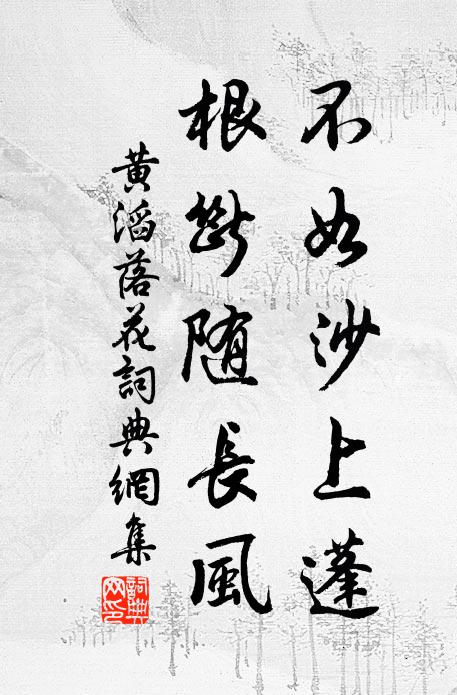 不如沙上蓬
根斷随長風
黄滔落花詞典網集
詞典網印